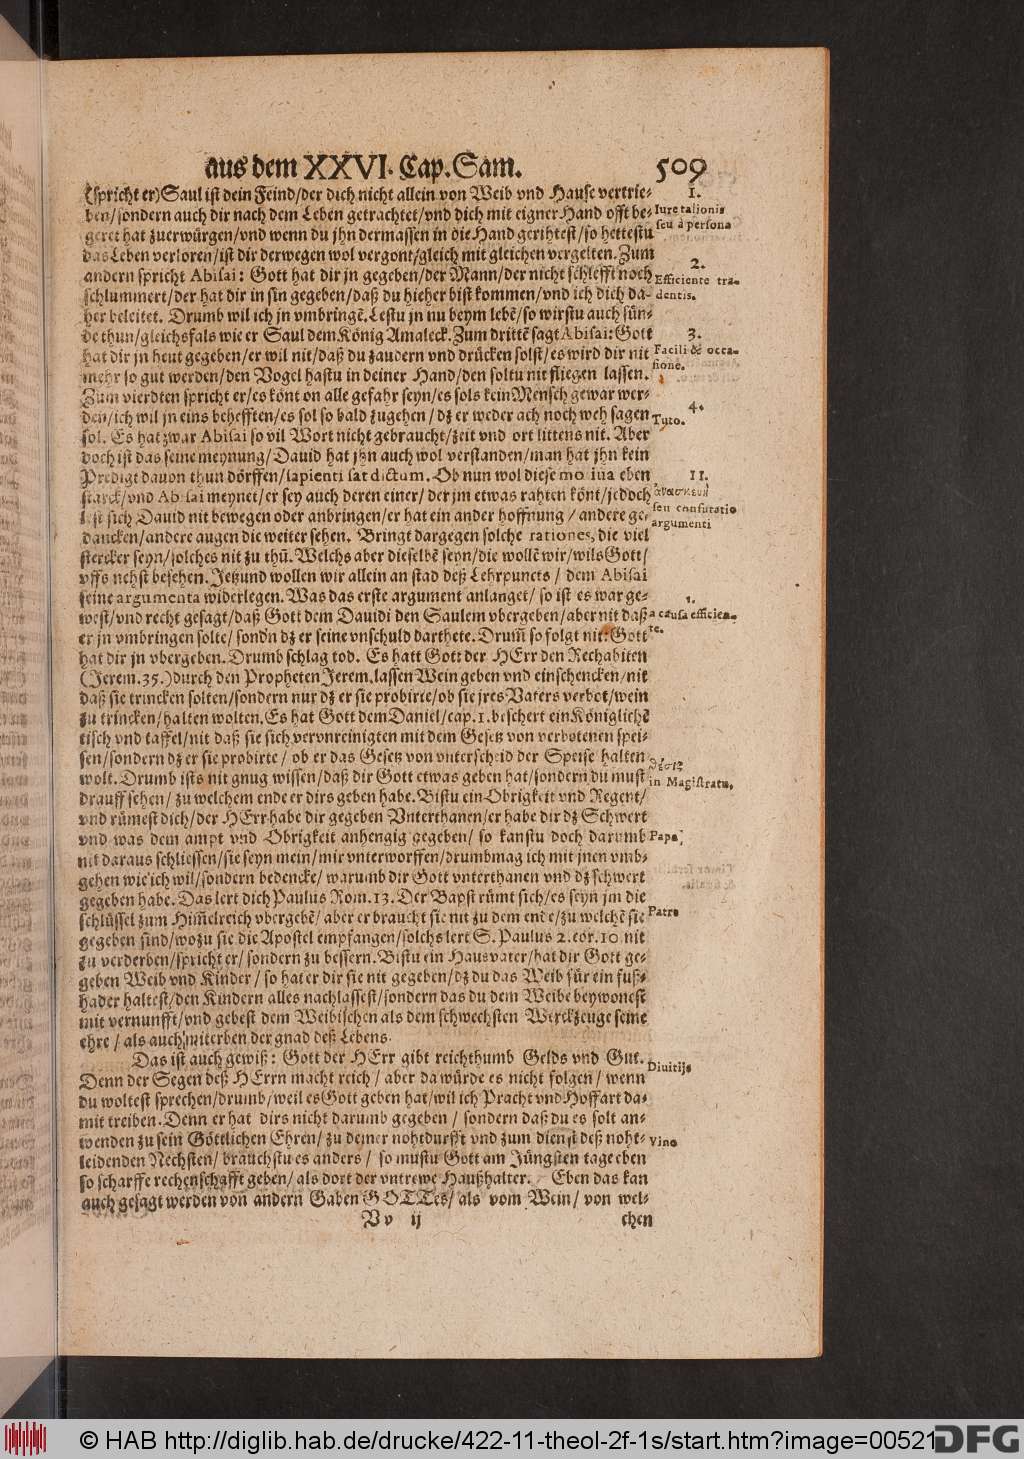 aus dem XXVI. Cap. Sam. 509
(spricht er) Saul ist dein Feind/der dich nicht allein von Weib vnd Hause vertrie-
ben/sondern auch dir nach dem Leben getrachtet/vnd dich mit eigner Hand offt be-
geret hat zuerwürgen/vnd wenn du jhn dermassen in die Hand gerihtest/so hettestu
das Leben verloren/ist dir derwegen wol vergont/gleich mit gleichen vergelten. Zum
andern spricht Abisai: Gott hat dir jn gegeben/der Mann/der nicht schlefft noch
schlummert/der hat dir in sin gegeben/daß du hieher bist kommen/vnd ich dich da-
her beleitet. Drumb wil ich jn vmbringē. Lestu jn nu beym lebē/so wirstu auch sün-
de thun/gleichsfals wie er Saul dem König Amaleck. Zum drittē sagt Abisai: Gott
hat dir jn heut gegeben/er wil nit/daß du zaudern vnd drücken solst/es wird dir nit
mehr so gut werden/den Vogel hastu in deiner Hand/den soltu nit fliegen lassen.
Zum vierdten spricht er/es könt on alle gefahr seyn/es sols kein Mensch gewar wer-
den/ich wil jn eins behefften/es sol so bald zugehen/dz er weder ach noch weh sagen
sol. Es hat zwar Abisai so vil Wort nicht gebraucht/zeit vnd ort littens nit. Aber
doch ist das seine meynung/Dauid hat jhn auch wol verstanden/man hat jhn kein
Predigt dauon thun dörffen/sapienti sat dictum. Ob nun wol diese motiua eben
starck/vnd Abisai meynet/er sey auch deren einer/der jm etwas rahten könt/jedoch
lest sich Dauid nit bewegen oder anbringen/er hat ein ander hoffnung/andere ge-
dancken/andere augen die weiter sehen. Bringt dargegen solche rationes, die viel
stercker seyn/solches nit zu thū. Welchs aber dieselbē seyn/die wollē wir/wils Gott/
vffs nehst besehen. Jetzund wollen wir allein an stad deß Lehrpuncts/dem Abisai
seine argumenta widerlegen. Was das erste argument anlanget/so ist es war ge-
west/vnd recht gesagt/daß Gott dem Dauidi den Saulem vbergeben/aber nit daß
er jn vmbringen solte/sondn dz er seine vnschuld darthete. Drum̄ so folgt nit: Gott
hat dir jn vbergeben. Drumb schlag tod. Es hatt Gott der HErr den Rechabiten
(Jerem. 35.) durch den Propheten Jerem. lassen Wein geben vnd einschencken/nit
daß sie trincken solten/sondern nur dz er sie probirte/ob sie jres Vaters verbot/wein
zu trincken/halten wolten. Es hat Gott dem Daniel/cap. 1. beschert ein Königlichē
tisch vnd taffel/nit daß sie sich verunreinigten mit dem Gesetz von verbotenen spei-
sen/sondern dz er sie probirte/ob er das Gesetz von vnterscheid der Speise halten
wolt. Drumb ists nit gnug wissen/daß dir Gott etwas geben hat/sondern du must
drauff sehen/zu welchem ende er dirs geben habe. Bistu ein Obrigkeit vnd Regent/
vnd rümest dich/der HErr habe dir gegeben Vnterthanen/er habe dir dz Schwert
vnd was dem ampt vnd Obrigkeit anhengig gegeben/so kanstu doch darumb
nit daraus schliessen/sie seyn mein/mir vnterworffen/drumb mag ich mit jnen vmb-
gehen wie ich wil/sondern bedencke/warumb dir Gott vnterthanen vnd dz schwert
gegeben habe. Das lert dich Paulus Rom. 13. Der Bapst rümt sich/es seyn jm die
schlüssel zum Him̄elreich vbergebē/aber er braucht sie nit zu dem ende/zu welchē sie
gegeben sind/wozu sie die Apostel empfangen/solchs lert S. Paulus 2. cor. 10 nit
zu verderben/spricht er/sondern zu bessern. Bistu ein Hausvater/hat dir Gott ge-
geben Weib vnd Kinder/so hat er dir sie nit gegeben/dz du das Weib für ein fuß-
hader haltest/den Kindern alles nachlassest/sondern das du dem Weibe beywonest
mit vernunfft/vnd gebest dem Weibischen als dem schwechsten Werckzeuge seine
ehre/als auch miterben der gnad deß Lebens.
Das ist auch gewiß: Gott der HErr gibt reichthumb Gelds vnd Gut.
Denn der Segen deß HErrn macht reich/aber da würde es nicht folgen/wenn
du woltest sprechen/drumb/weil es Gott geben hat/wil ich Pracht vnd Hoffart da-
mit treiben. Denn er hat dirs nicht darumb gegeben/sondern daß du es solt an-
wenden zu sein Göttlichen Ehren/zu deiner nohtdurfft vnd zum dienst deß noht-
leidenden Nechsten/brauchstu es anders/so mustu Gott am Jüngsten tage eben
so scharffe rechenschafft geben/als dort der vntrewe Haußhalter. Eben das kan
auch gesagt werden von andern Gaben GOTTes/als vom Wein/von wel-
Vv ij chen
1.
Iure talionis
seu à persona
2.
Efficiente tra-
dentis.
3.
Facili & occa-
sione.
4.
Tuto.
II.
ἀνασκευὴ
seu confutatio
argumenti
1.
a causa efficien-
te.
in Magistratu.
Papa,
Patre
Diuitijs
Vino
© HAB http://diglib.hab.de/drucke/422-11-theol-2f-1s/start.htm?image=00521
DFG